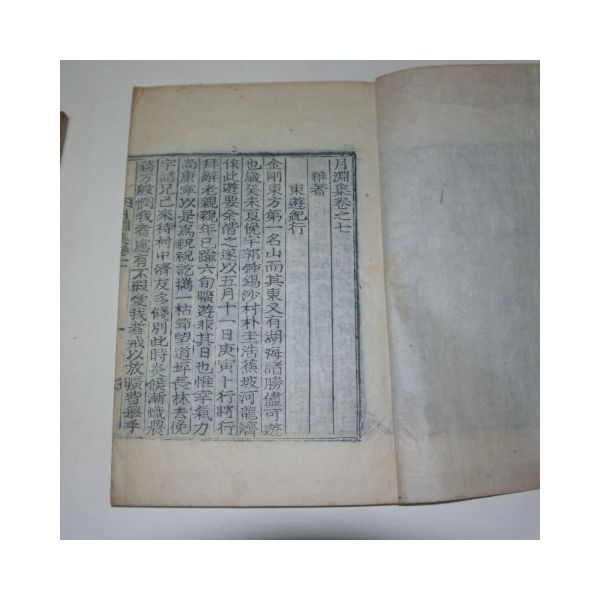 月淵集卷之七
雜著
東遊紀行
金剛東方第一名山而其東又有湖海諸勝儘可遊
也歲癸未夏俛宇郭鍾錫沙村朴圭浩蕉坡河龍濟
作此遊要余偕之遂以五月十一日庚寅卜行將行
拜辭老親親年已踰六旬曠遊非其日也惟幸氣力
尚康寧以是爲祝祝訖攜一枯笻望道坪長林去俛
宇諸兄已來待村中儕友多餞別此時炎候漸熾農
務方殷憫我者慮有不暇愛我者戒以放曠皆無手